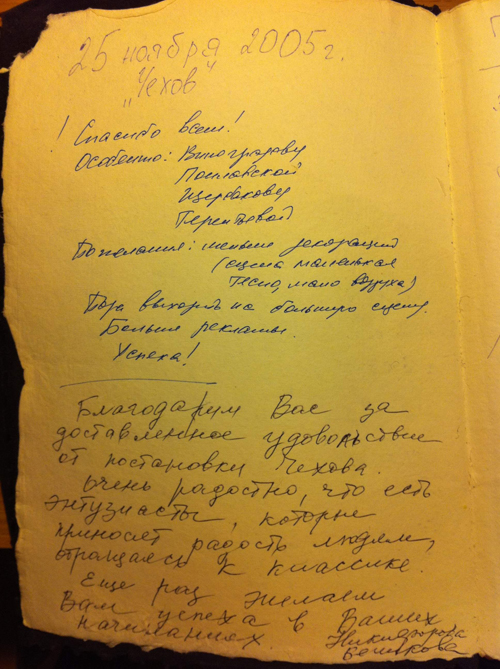 25 ноября 2005 г.
"Чехов"
! Спасибо всем!
Особенно: Виноградову
Поплавской
Щербакову
Терентьевой
Пожелания: меньше декораций
(сцена маленькая
тесно, мало воздуха)
Пора выходить на большую сцену.
Больше рекламы.
Успеха!
Благодарим Вас за
доставленное удовольствие
от постановки Чехова.
Очень радостно, что есть
энтузиасты, которые
приносят радость людям,
обращаясь к классике.
Еще раз желаем
Вам успеха в Ваших
начинаниях. Никифорова